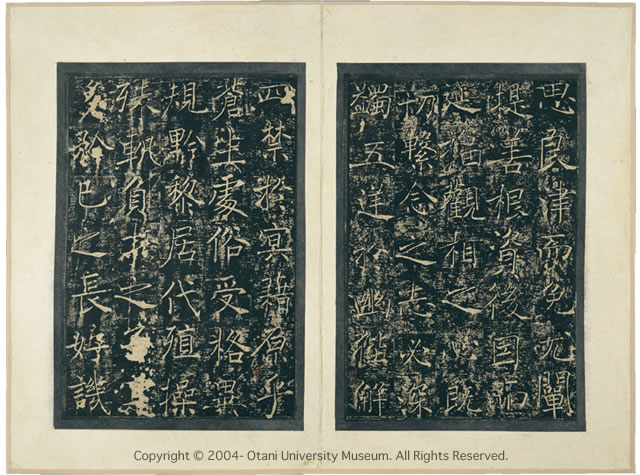 思良津而免尤闡
提善根資後因而
延福觀相之心既
切繫念之志必深
蠲五逆於幽解
四禁於冥藉原乎
蒼生處俗受格異
規黔黎居代殖操
殊軌負才之
矜己之長好譏
Copyright © 2004- Otani University Museum. All Rights Reserved.